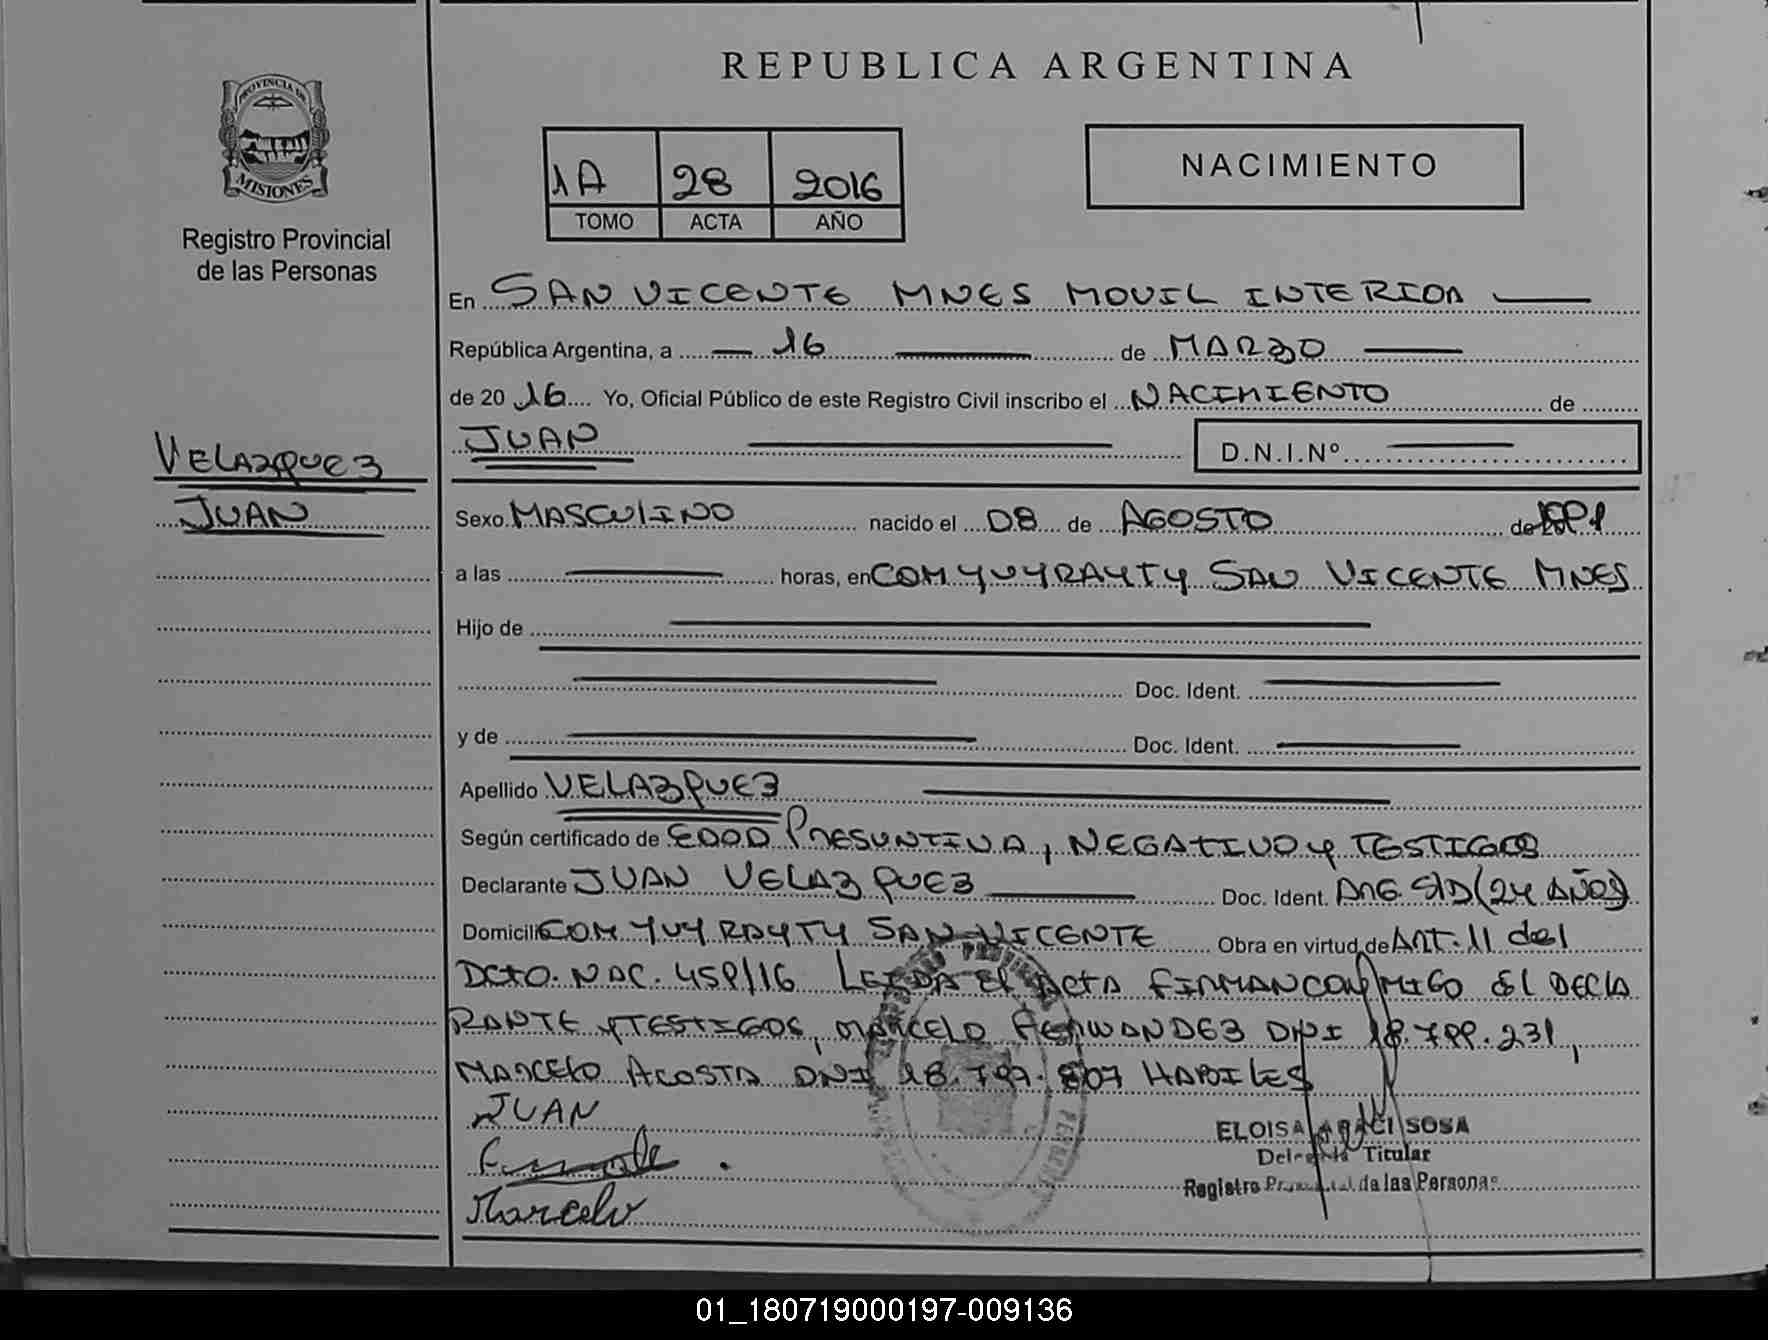 REPUBLICA ARGENTINA
PROVINCIA DE
MISIONES
Registro Provincial
de las Personas
1A 28 2016
TOMO ACTA AÑO
NACIMIENTO
En SAN VICENTE MNES MOVIL INTERIOR
República Argentina, a 16 de MARZO
de 20 16 Yo, Oficial Público de este Registro Civil inscribo el NACIMIENTO de
JUAN D.N.I.Nº
VELAZQUEZ
JUAN
Sexo MASCULINO nacido el 08 de AGOSTO de
a las horas, en COM YVYRAYTY SAN VICENTE MNES
Hijo de
Doc. Ident.
y de Doc. Ident.
Apellido VELAZQUEZ
Según certificado de EDAD PRESUNTIVA, NEGATIVO y TESTIGOS
Declarante JUAN VELAZQUEZ Doc. Ident. ARG. S/D (24 AÑOS)
Domicili COM YVYRAYTY SAN VICENTE Obra en virtud de ART. 11 del
DCTO. NAC. 459/16 LEIDA El ACTA FIRMAN CONMIGO EL DECLA
RANTE y TESTIGOS, MARCELO FERNANDEZ DNI 18.799.231,
MARCELO ACOSTA DNI 18.797.807 HABILES
JUAN
Marcelo
ELOISA ARACI SOSA
Titular
Registro de las Personas
01_180719000197-009136